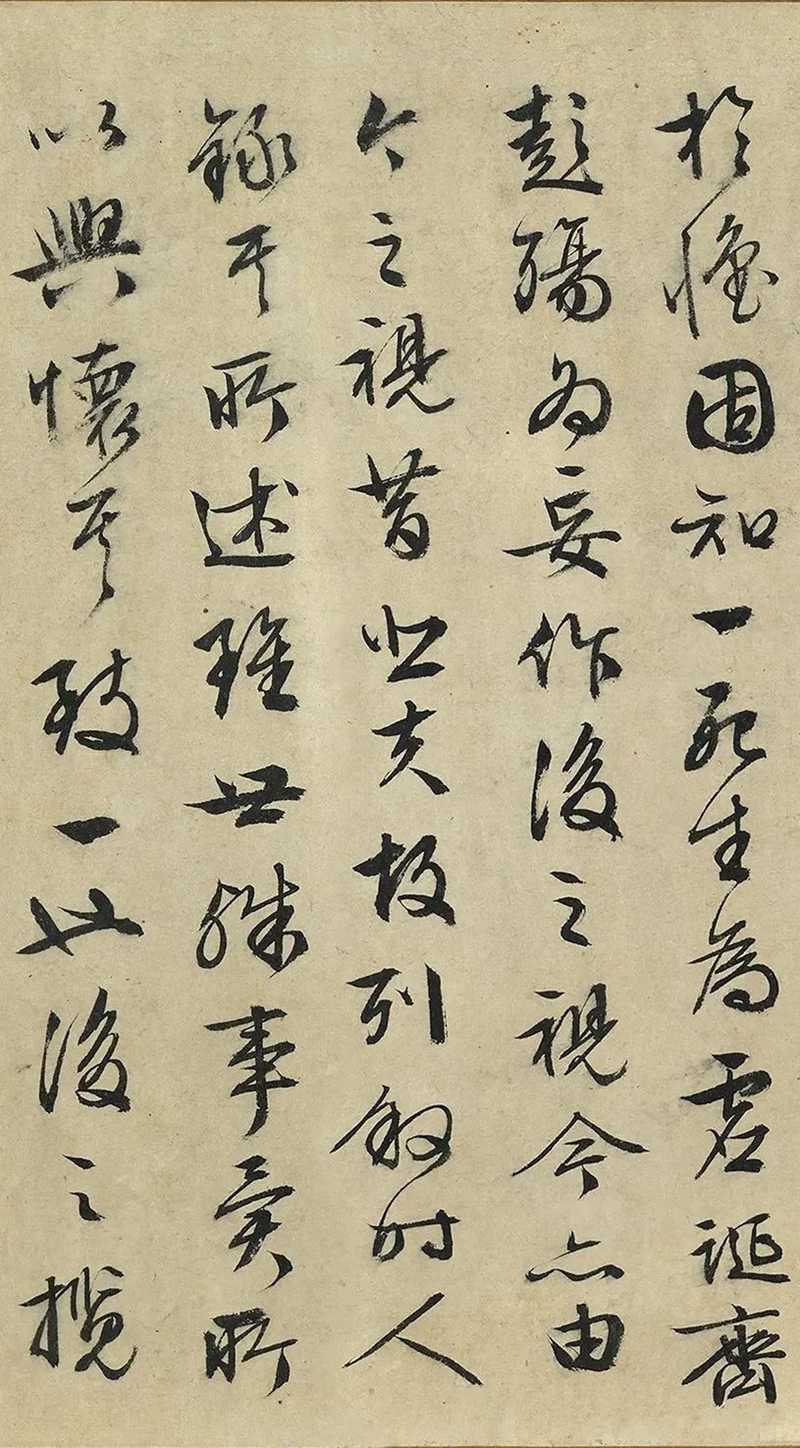 於懷固知一死生為虛誕齊
彭殤為妄作後之視今亦由
今之視昔悲夫故列敘時人
錄其所述雖世殊事異所
以興懷其致一也後之攬